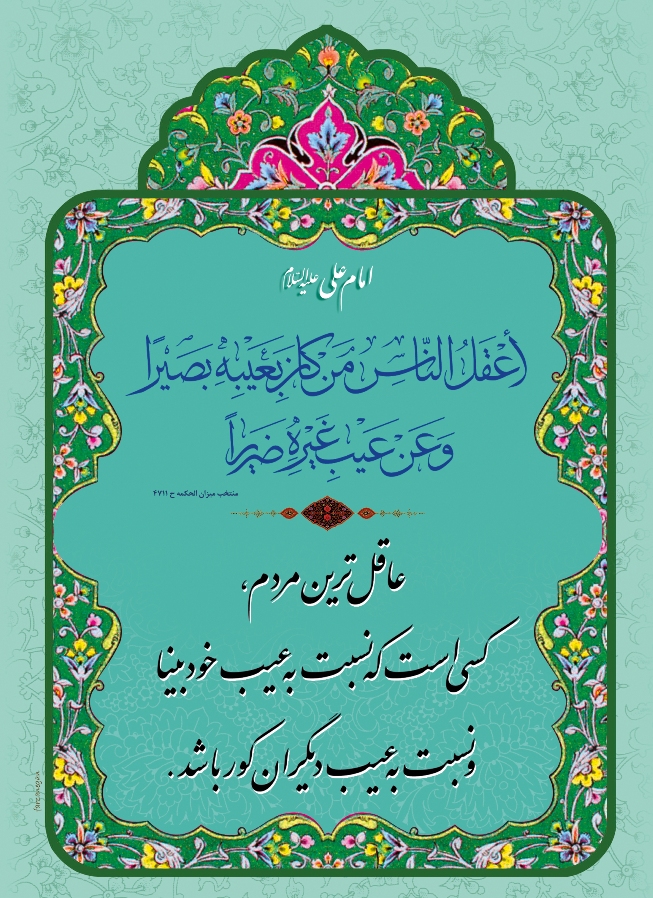 امام علی علیه‌السلام
أَعْقَلُ النَّاسِ مَنْ كَانَ بِعَيْبِهِ بَصِيرًا
وَعَنْ عَيْبِ غَيْرِهِ ضَرِيرًا
منتخب میزان الحکمه ح ۴۷۱۱
عاقل‌ترین مردم،
کسی است که نسبت به عیب خود بینا
و نسبت به عیب دیگران کور باشد.